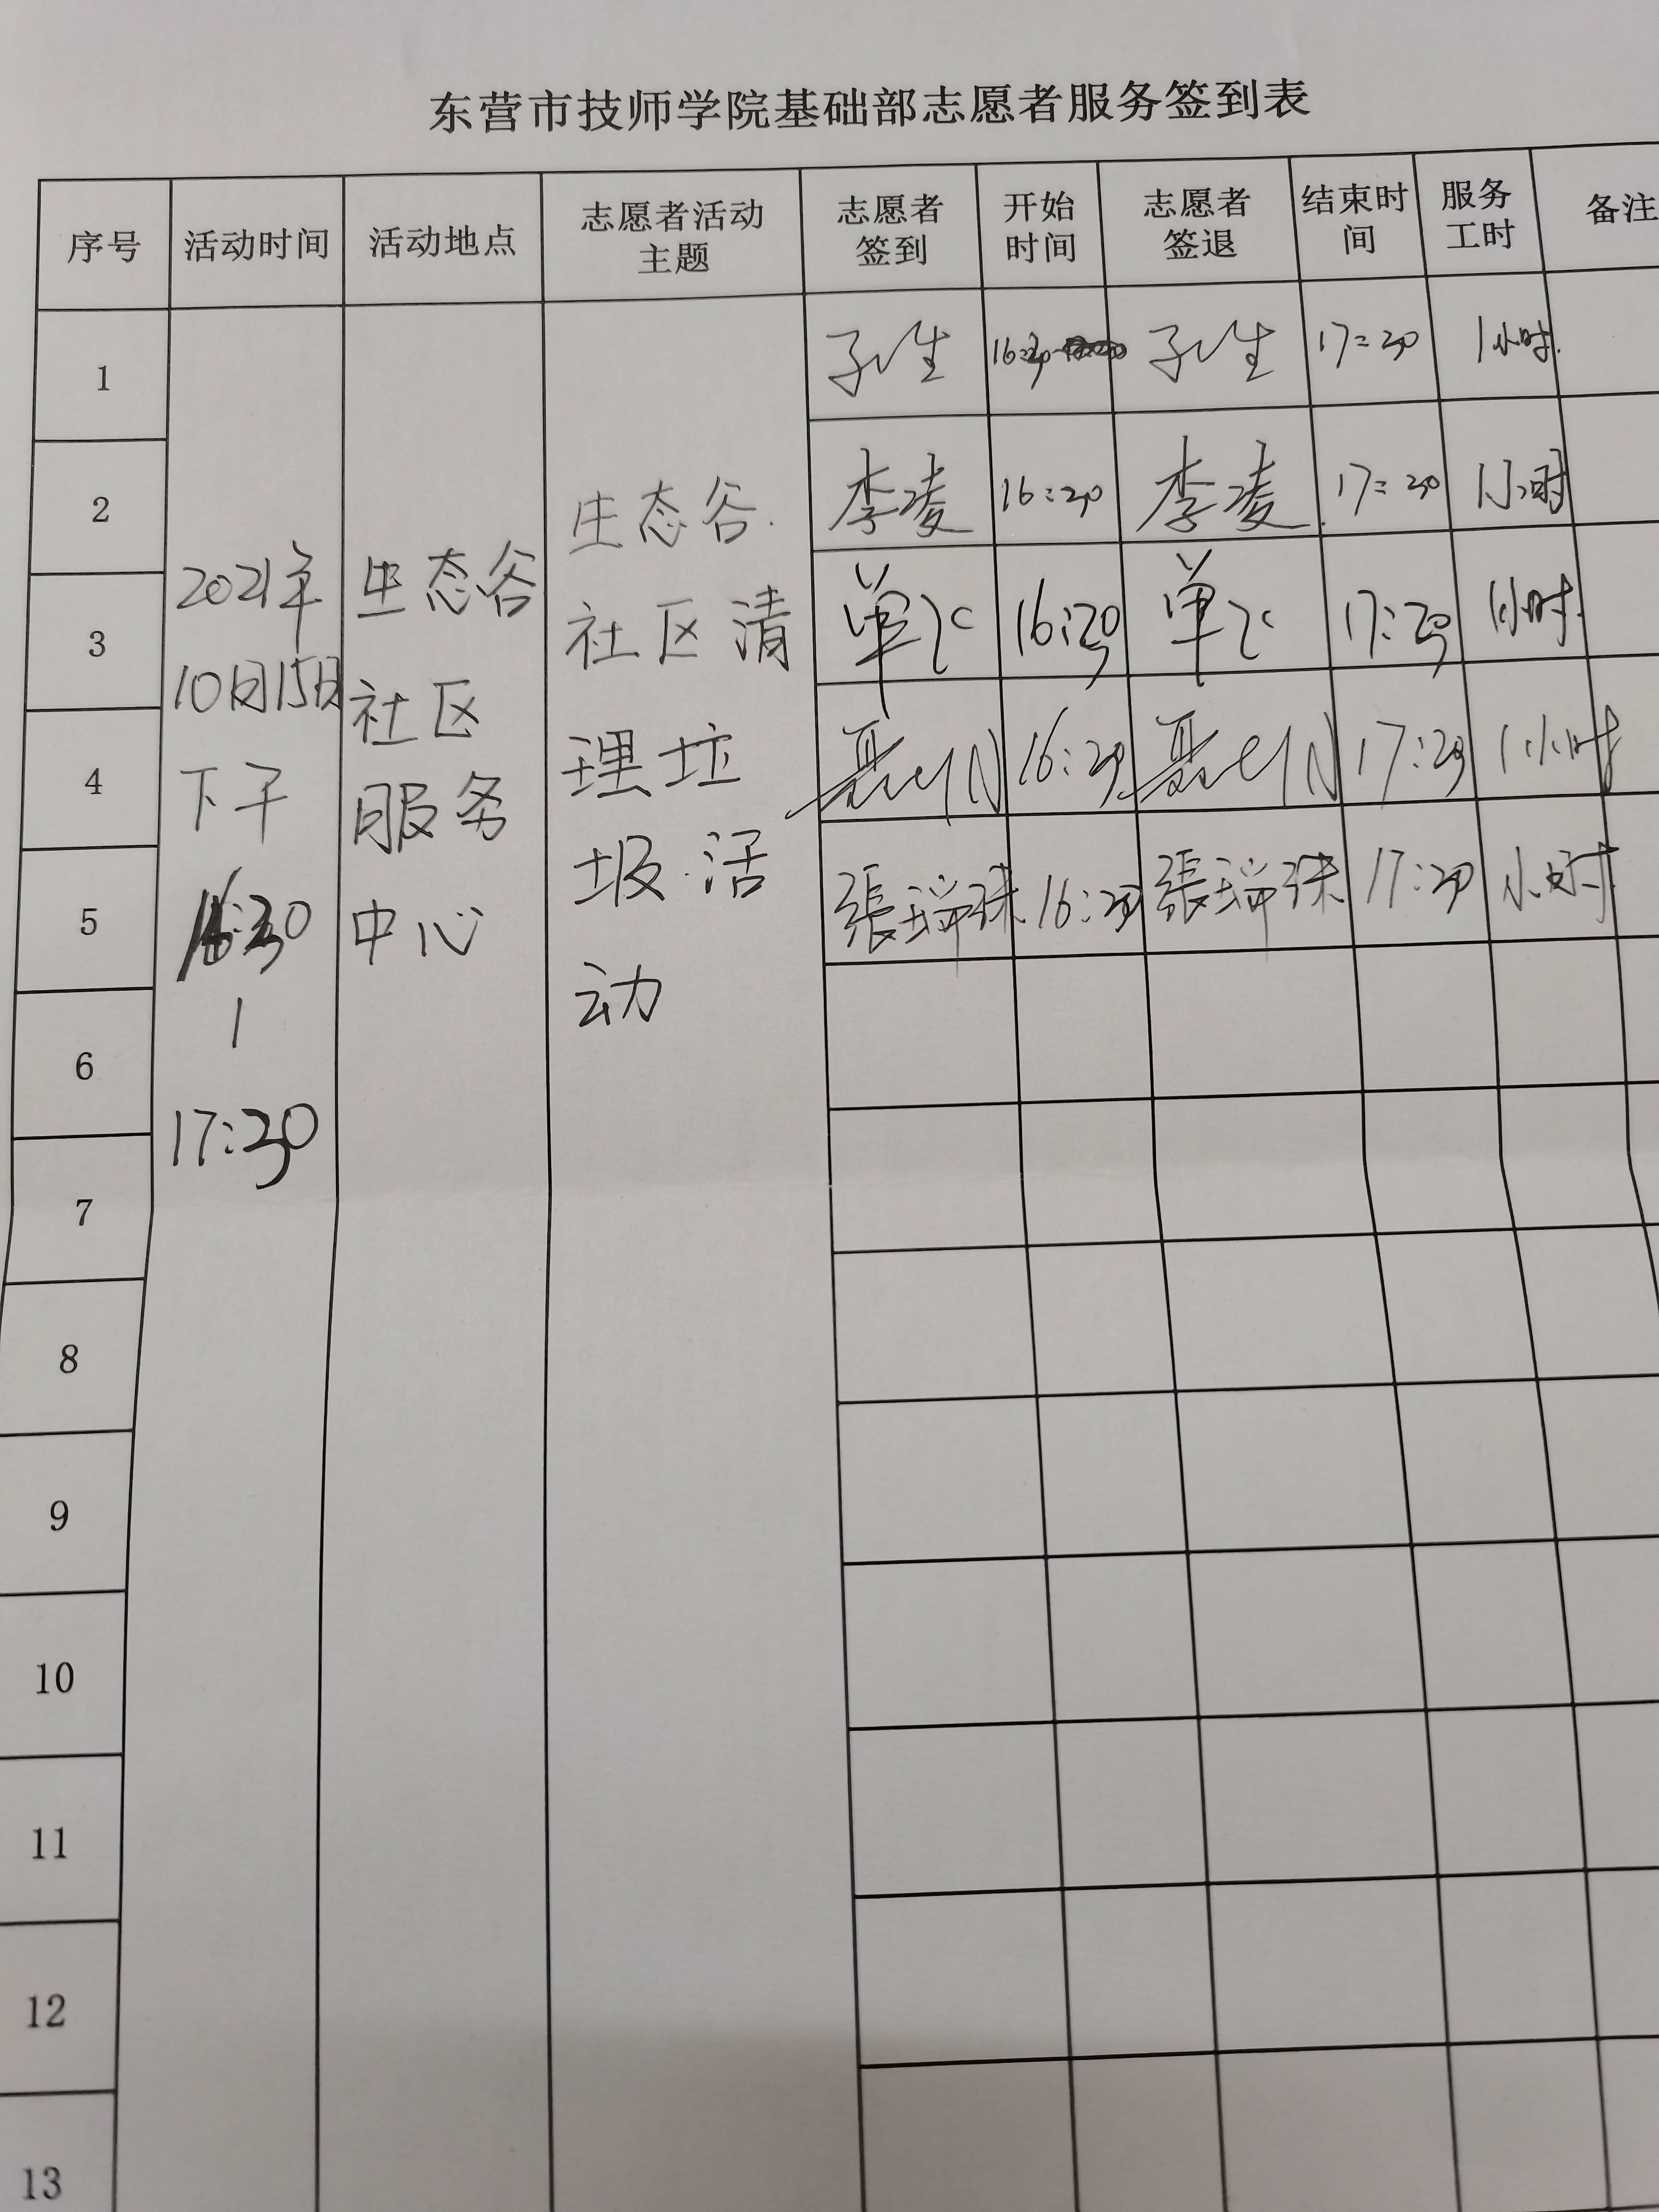 东营市技师学院基础部志愿者服务签到表
序号 活动时间 活动地点 志愿者活动主题 志愿者签到 开始时间 志愿者签退 结束时间 服务工时 备注
2021年
10月15日
下午
16:30
|
17:30
生态谷
社区
服务
中心
生态谷
社区清
理垃
圾活
动
1 16:30 17:30 1小时
2 李凌 16:30 李凌 17:30 1小时
3 16:30 17:30 1小时
4 16:30 17:30 1小时
5 張瑞珠 16:30 張瑞珠 17:30 小时
6
7
8
9
10
11
12
13